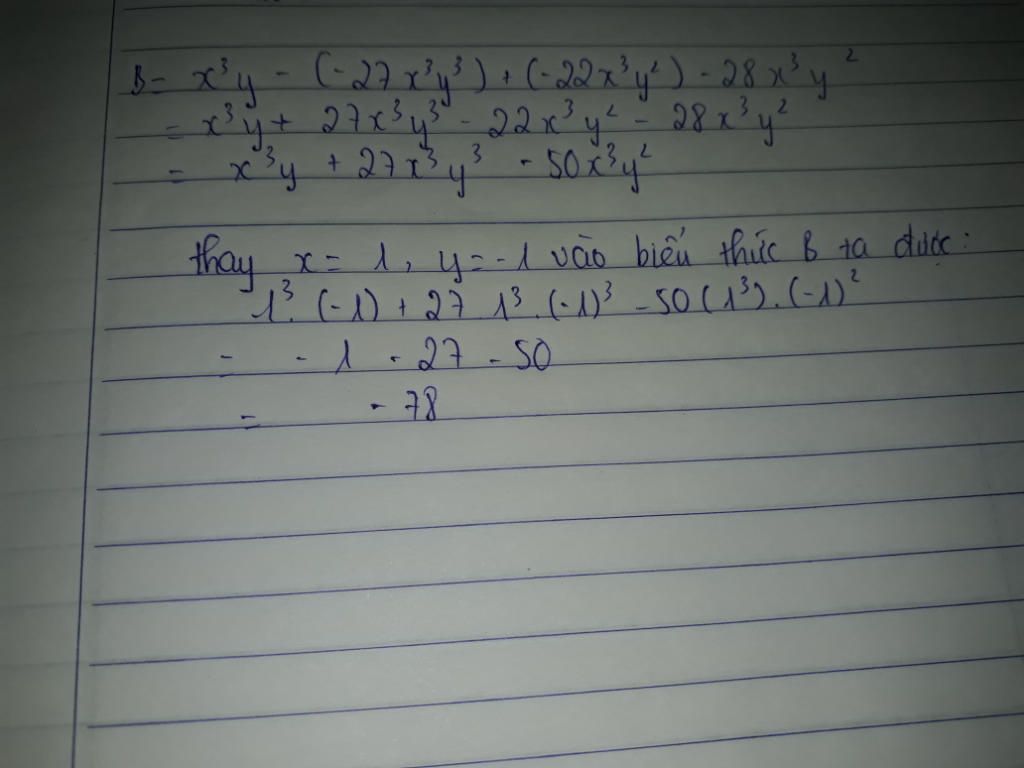 B = x³y - (-27x³y³) + (-22x³y²) - 28x³y²
= x³y + 27x³y³ - 22x³y² - 28x³y²
= x³y + 27x³y³ - 50x³y²
thay x = 1, y = -1 vào biểu thức B ta được:
1³. (-1) + 27 1³. (-1)³ - 50(1³). (-1)²
= - 1 - 27 - 50
= - 78